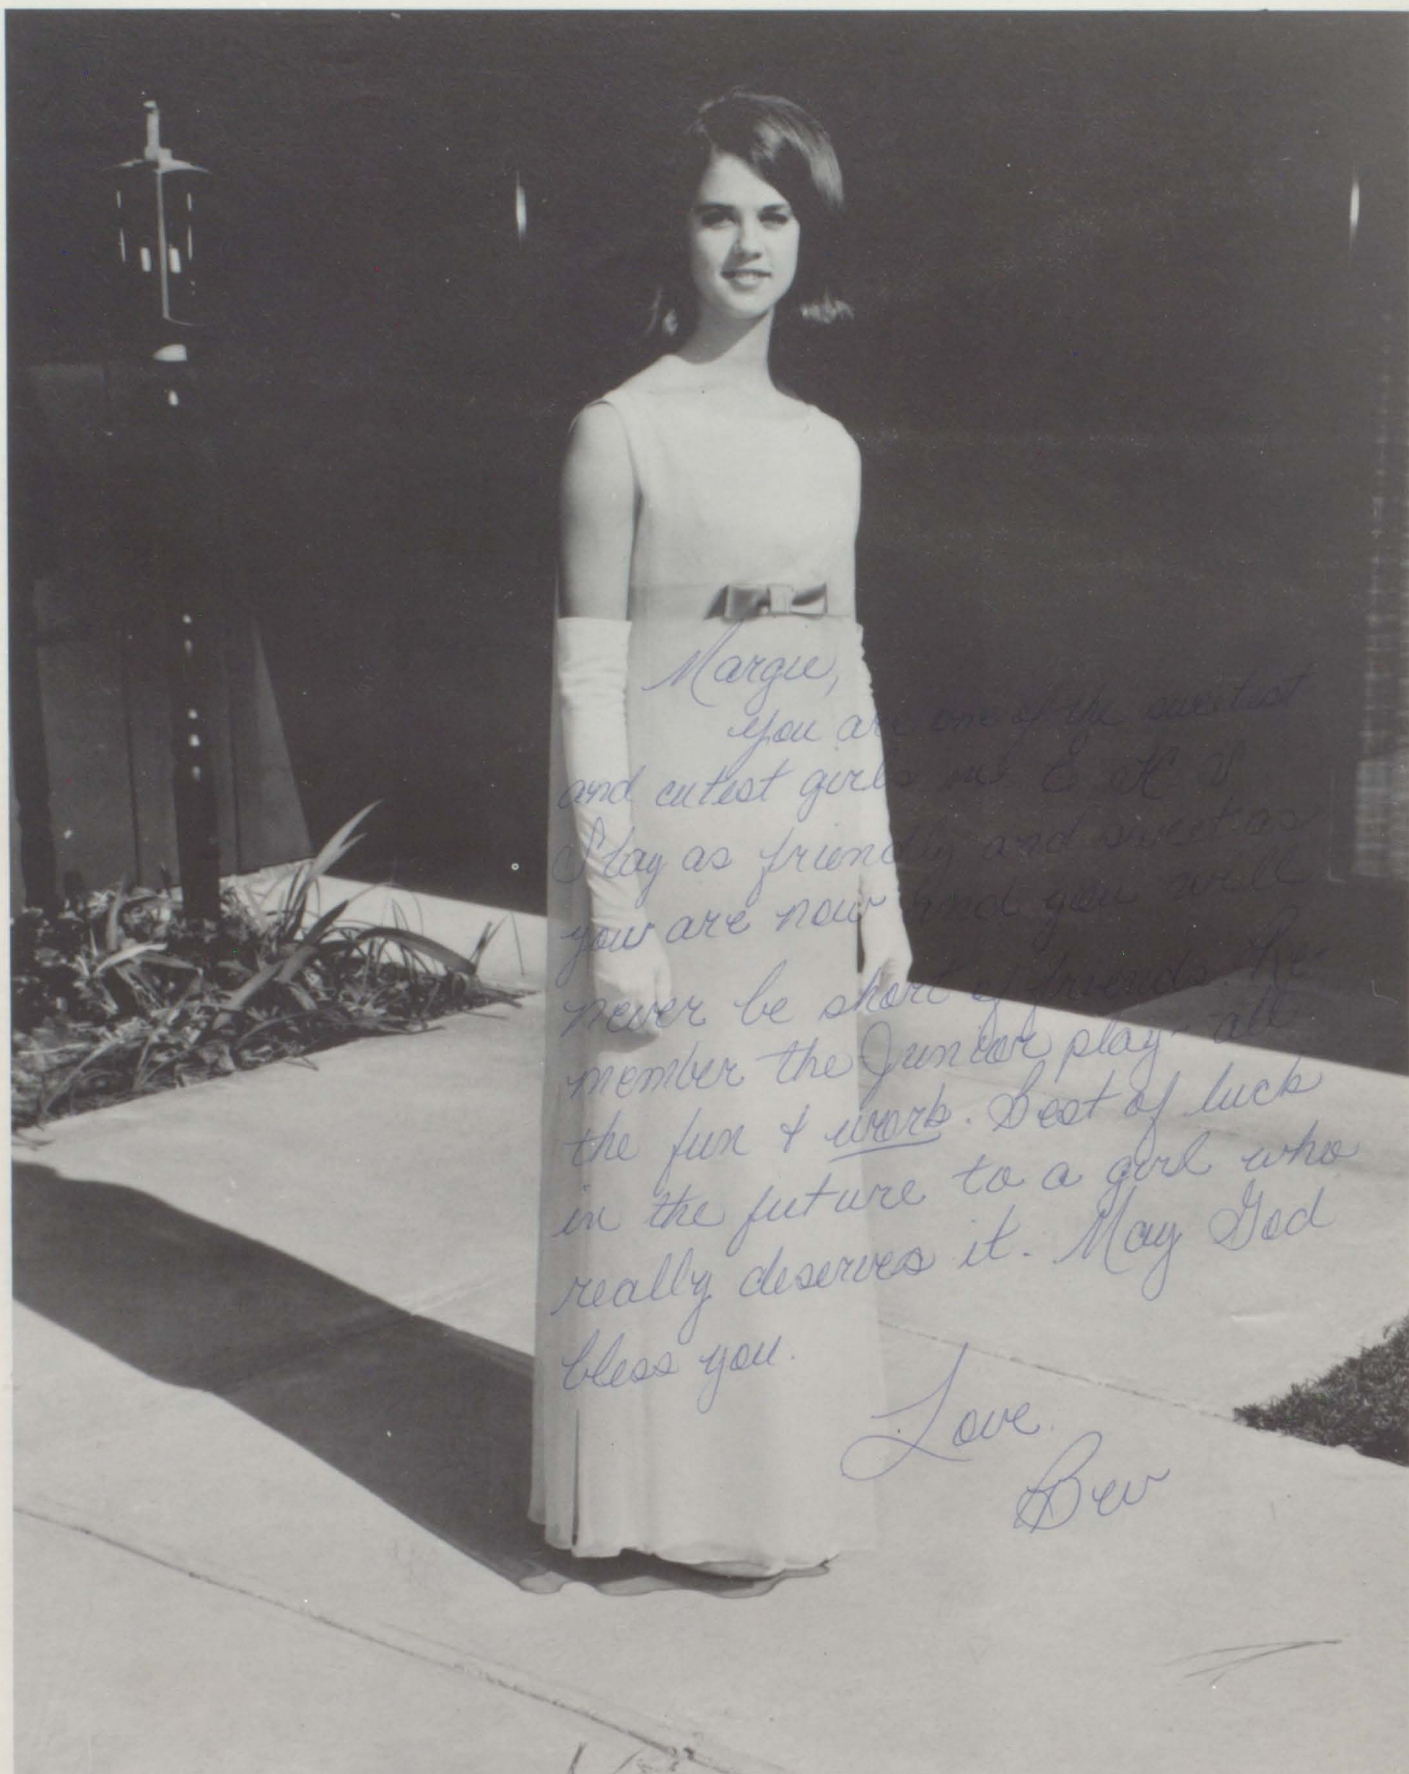 Margie,
You are one of the sweetest
and cutest girls in E. H. S
Stay as friendly and sweet as
you are now and you will
never be short of friends. Re-
member the Junior play - all
the fun & work. Best of luck
in the future to a girl who
really deserves it. May God
bless you.
Love.
Bev